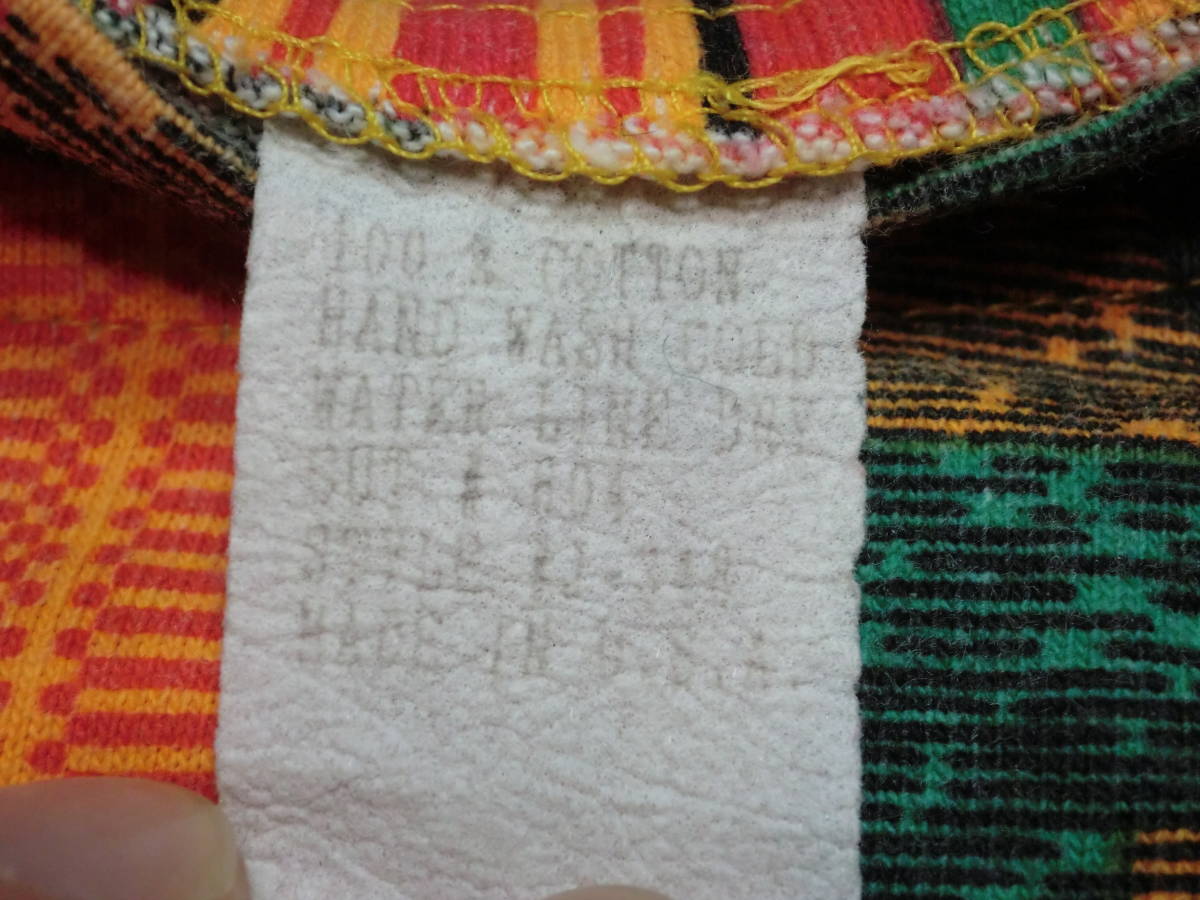 100 % COTTON
HAND WASH COLD
WATER LINE DRY
CUT # 604
STYLE
MADE IN U.S.A